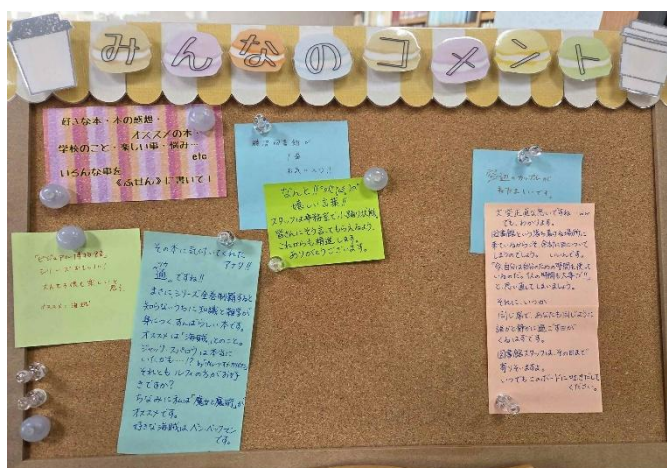 みんなのコメント
好きな本・本の感想・
オススメの本
学校のこと・楽しい事・悩み…
etc
いろんな事を
《ふせん》に書いて!
なんと!!
嬉しい言葉!!
スタッフは事務室で小踊り状態。
皆さんにそう言ってもらえるよう、
これからも精進します。
ありがとうございます。
シリーズ
オススメ:海賊
その本に気付いてくれた
アナタ!!
通ですね!!
まさにシリーズ全巻制覇すると
知らないうちに知識と雑学が
身につくすばらしい本です。
オススメは「海賊」とのこと。
ジャック・スパロウは本当に
いたかも…!?
それとも ルフィの方がお好
きですか?
ちなみに私は「魔女と魔術」が
オススメです。
好きな海賊はベン・ベックマン
です。
カップルが
大変正直な思いですね
でも、わかります。
図書館という落ち着ける場所に
来ているからこそ、余計に気になって
しまうのでしょう。いいんです。
「今、自分は自分のための時間を使って
いるのだ。1人の時間も大事だ!!」
と、思い直してしまいましょう。
それに、いつか
同じ席で、あなたも同じように
誰かと静かに過ごす日が
くるはずです。
図書館スタッフは、その日まで
寄りそいますよ。
いつでもこのボードに吐きだして
ください。